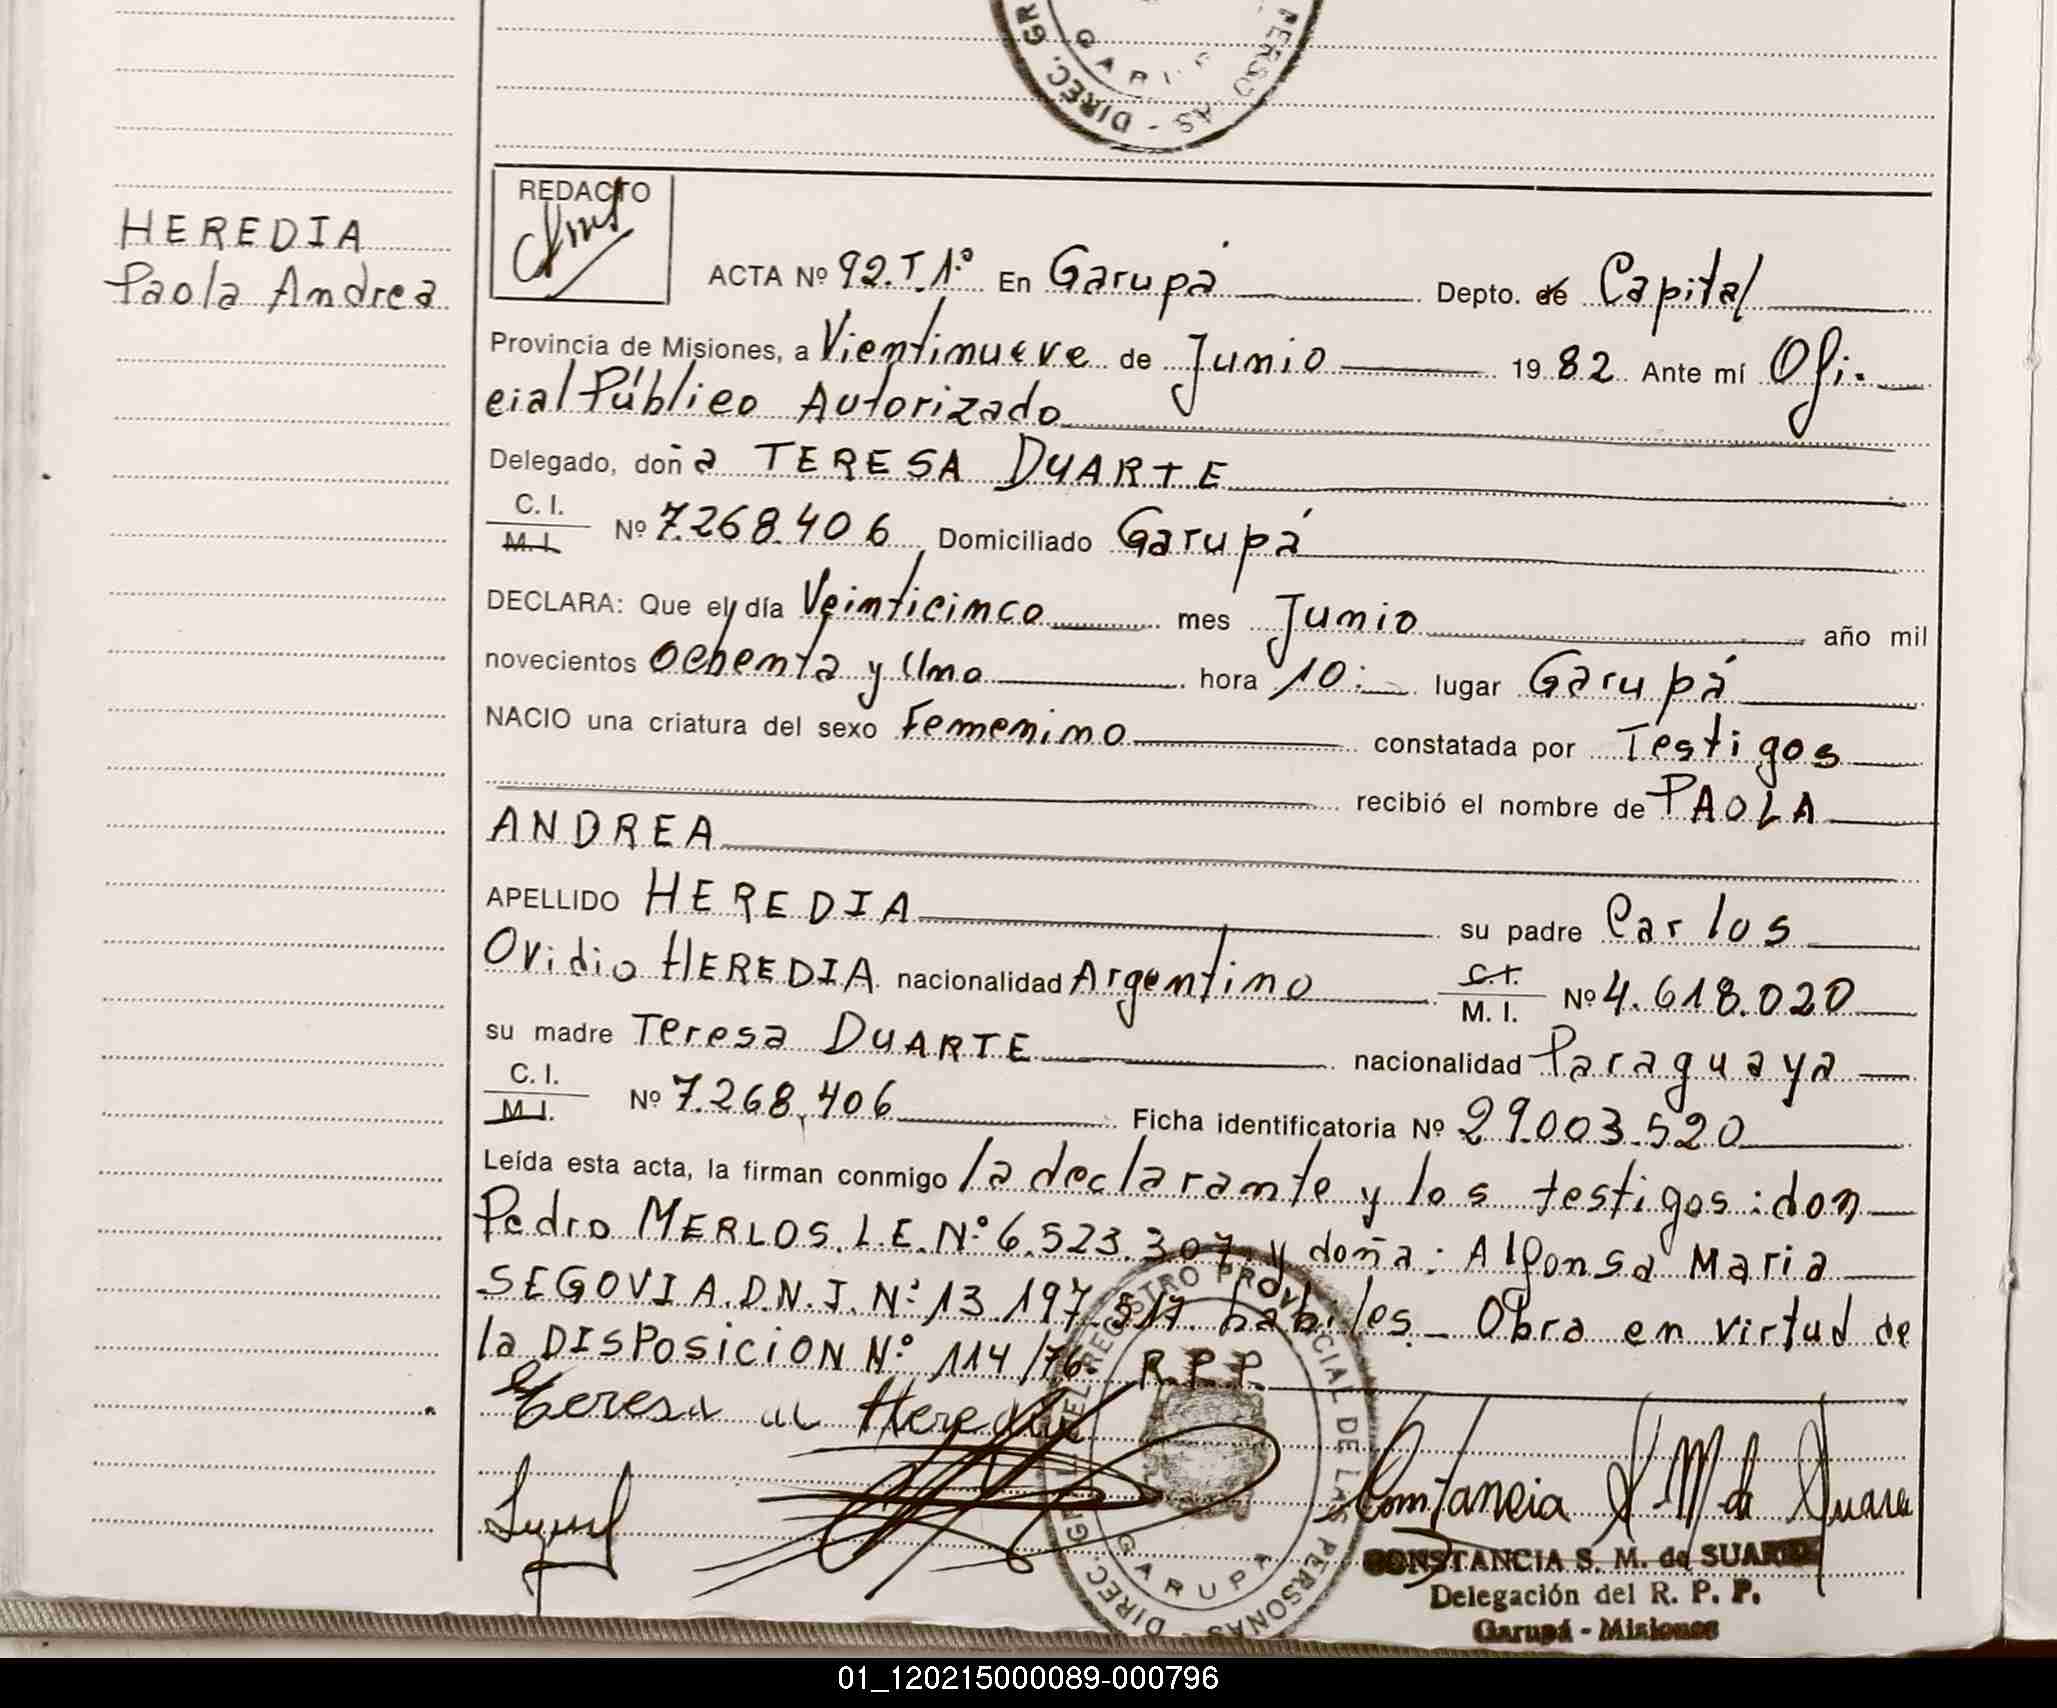 DIREC. GR
PERSO AS
HEREDIA
Paola Andrea
REDACTO
ACTA Nº 92.T.1º En Garupá Depto. de Capital
Provincia de Misiones, a Vientinueve de Junio 1982 Ante mí Ofi-
cial Público Autorizado
Delegado, doña TERESA DUARTE
C. I.
M. I. Nº 7.268.406 Domiciliado Garupá
DECLARA: Que el día Veinticinco mes Junio año mil
novecientos Ochenta y Uno hora 10: lugar Garupá
NACIO una criatura del sexo Femenino constatada por Testigos
recibió el nombre de PAOLA
ANDREA
APELLIDO HEREDIA su padre Carlos
Ovidio HEREDIA nacionalidad Argentino C.I. M. I. Nº 4.618.020
su madre Teresa DUARTE nacionalidad Paraguaya
C. I.
M.I. Nº 7.268.406 Ficha identificatoria Nº 29.003.520
Leída esta acta, la firman conmigo la declarante y los testigos: don
Pedro MERLOS. L.E. Nº 6.523.307 y doña: Alfonsa Maria
SEGOVIA. D.N.I. Nº 13.197.517 habiles._ Obra en virtud de
la DISPOSICION Nº 114/76 R.P.P.
Teresa de Heredia
Constancia S. M. de Suarez
DIREC. GRAL DEL REGISTRO PROVINCIAL DE LAS PERSONAS
GARUPA
CONSTANCIA S. M. de SUAREZ
Delegación del R. P. P.
Garupá - Misiones
01_120215000089-000796